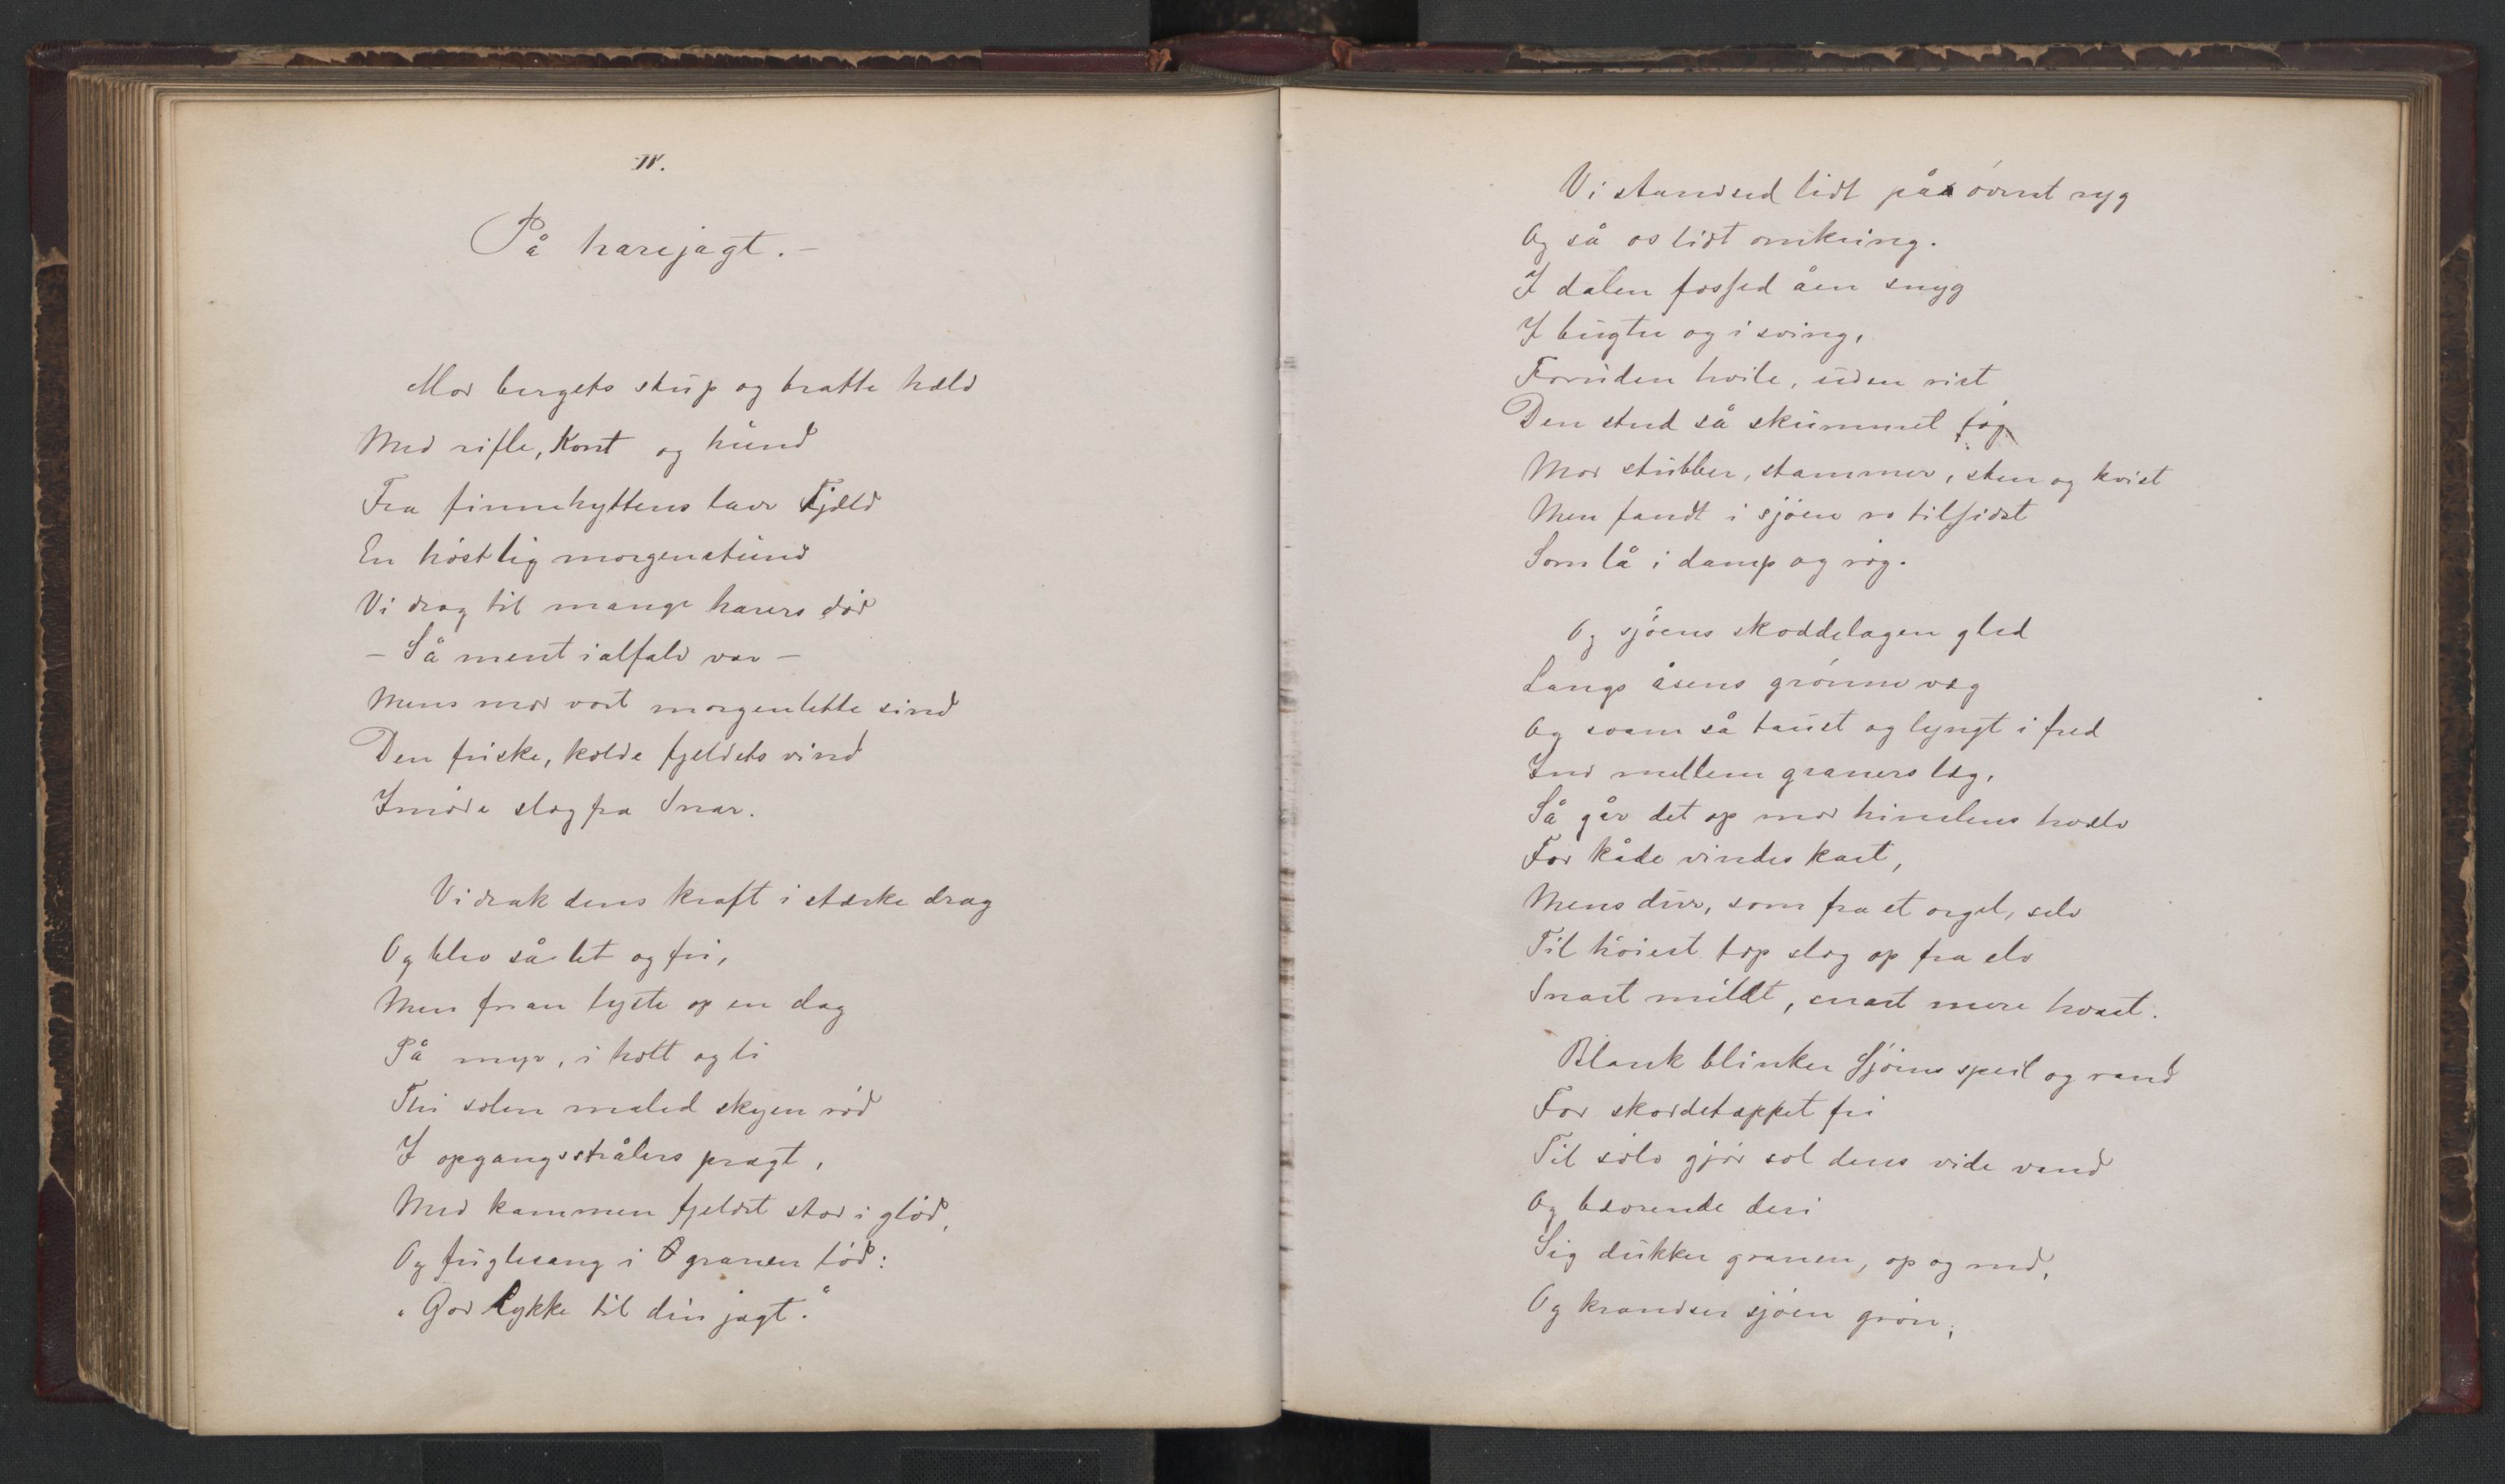 IV.
På harejagt. —
Mod bergets stup og bratte held
Med rifle, Kont og hund
Fra finnehyttens lave Tjeld
En høstlig morgenstund
Vi drog til mange harers død
— Så ment ialfald var —
Mens mod vort morgenlette sind
Den friske, kolde fjeldets vind
Imøde slog fra Snar.
Vi drak dens kraft i stærke drag
Og blev så let og fri,
Men foran lyste op en dag
På myr, i holt og li
Thi solen maled skyen rød
I opgangsstrålers pragt,
Med kammen fjeldet stod i glød,
Og fuglesang i granen lød:
"God lykke til din jagt."
Vi standsed lidt på øverst ryg
Og så os lidt omkring.
I dalen fossed åen snyg
I bugter og i sving,
Foruden hvile, uden rist
Den stred så skummet føg
Mod stubber, stammer, sten og kvist
Men fandt i sjøen ro tilsidst
Som lå i damp og røg.
Og sjøens skoddelagen gled
Langs åsens grønne væg
Og svam så taust og lyngt i fred
Ind mellem graners læg,
Så går det op mod himlens hvælv
For kåde vindes kast,
Mens dur, som fra et orgel, selv
Til høiest top slog op fra elv
Snart mildt, snart mere hvast.
Blank blinker Sjøens speil og rand
For skoddetæppet fri
Til sølv gjør sol dens vide vand
Og bævrende deri
Sig dukker granen, op og ned,
Og krandser sjøen grøn,